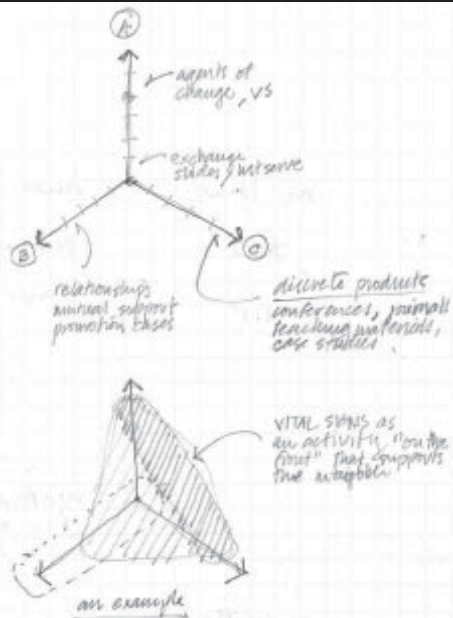 A
agents of
change, VS
exchange
slides,
B
C
relationships
mutual support
promotion cases
discrete products
conferences, journals
teaching materials,
case studies.
VITAL SIGNS as
an activity "on the
front" that supports
the intangible
an example